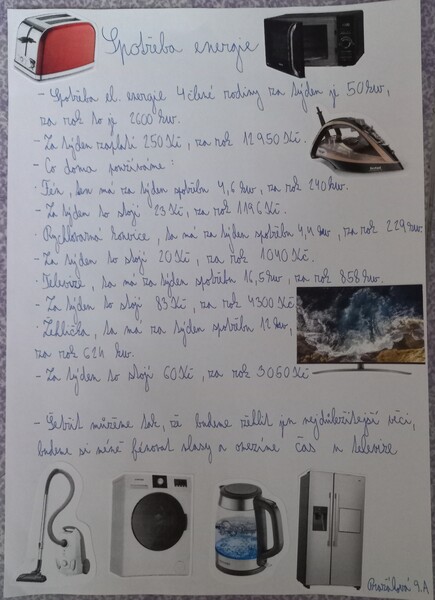 Spotřeba energie
- Spotřeba el. energie 4 členné rodiny za týden je 50 kw,
za rok to je 2600 kw.
- Za týden zaplatí 250 Kč, za rok 12 950 Kč.
- Co doma používáme:
· Fén, ten má za týden spotřebu 4,6 kw, za rok 240 kw.
- Za týden to stojí 23 Kč, za rok 1196 Kč.
· Rychlovarná konvice, ta má za týden spotřebu 4,4 kw, za rok 229 kw.
- Za týden to stojí 20 Kč, za rok 1040 Kč.
· Televize, ta má za týden spotřebu 16,5 kw, za rok 858 kw.
- Za týden to stojí 83 Kč, za rok 4300 Kč
· Žehlička, ta má za týden spotřebu 12 kw,
za rok 624 kw.
- Za týden to stojí 60 Kč, za rok 3060 Kč
- Šetřit můžeme tak, že budeme žehlit jen nejdůležitější věci,
budeme si méně fénovat vlasy a omezíme čas u televize
9.A